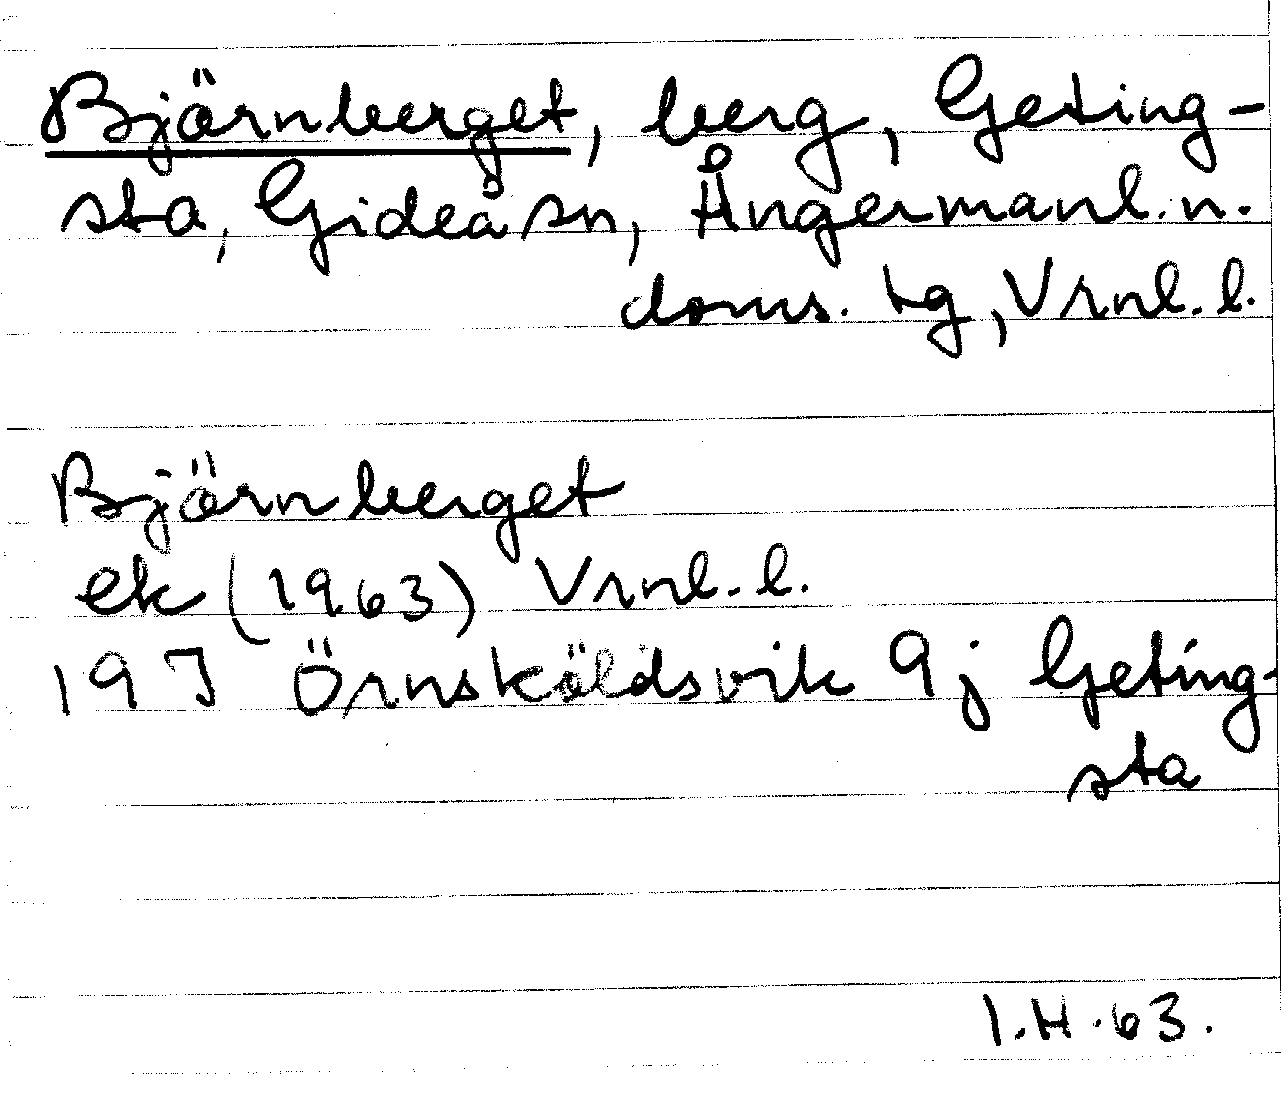 Björnberget, berg, Geting-
sta, Gideå sn, Ångermanl. n.
doms. tg, Vrnl. l.
Björnberget
ek (1963) Vrnl. l.
19 J Örnsköldsvik 9j Geting-
sta
I.H.63.